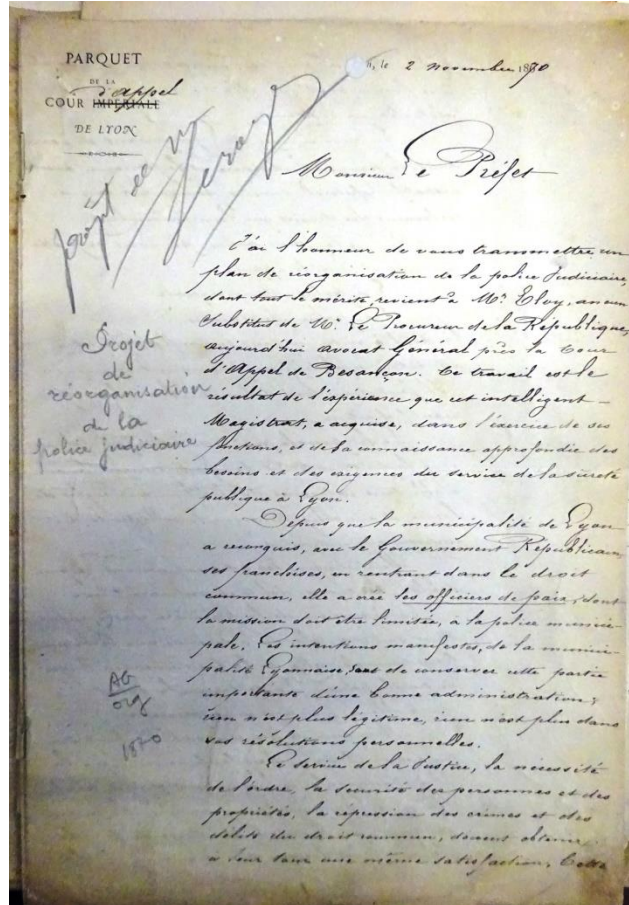 PARQUET
DE LA
COUR IMPERIALE d'appel
DE LYON
n, le 2 novembre 1870
projet de
Monsieur Le Préfet
J'ai l'honneur de vous transmettre un
plan de réorganisation de la police Judiciaire,
dont tout le mérite, revient à Mr. Eloy, ancien
Substitut de Mr. Le Procureur de la République,
aujourd'hui avocat Général près la Cour
d'Appel de Besançon. Ce travail est le
résultat de l'expérience que cet intelligent
Magistrat, a acquise, dans l'exercice de ses
fonctions, et de la connaissance approfondie des
besoins et des exigences du service de la sureté
publique à Lyon.
Depuis que la municipalité de Lyon
a reconquis, avec le Gouvernement Républicain,
ses franchises, en rentrant dans le droit
commun, elle a créé les officiers de paix, dont
la mission doit être limitée, à la police munici-
pale. Les intentions manifestes, de la munici-
palité Lyonnaise, sont de conserver cette partie
importante d'une bonne administration;
rien n'est plus légitime, rien n'est plus dans
vos résolutions personnelles.
Le service de la Justice, la nécessité
de l'ordre, la sécurité des personnes et des
propriétés, la répression des crimes et des
délits du droit commun, doivent obtenir
à leur tour une même satisfaction, Cette
Projet
de
réorganisation
de la
police judiciaire
AG
org
1870